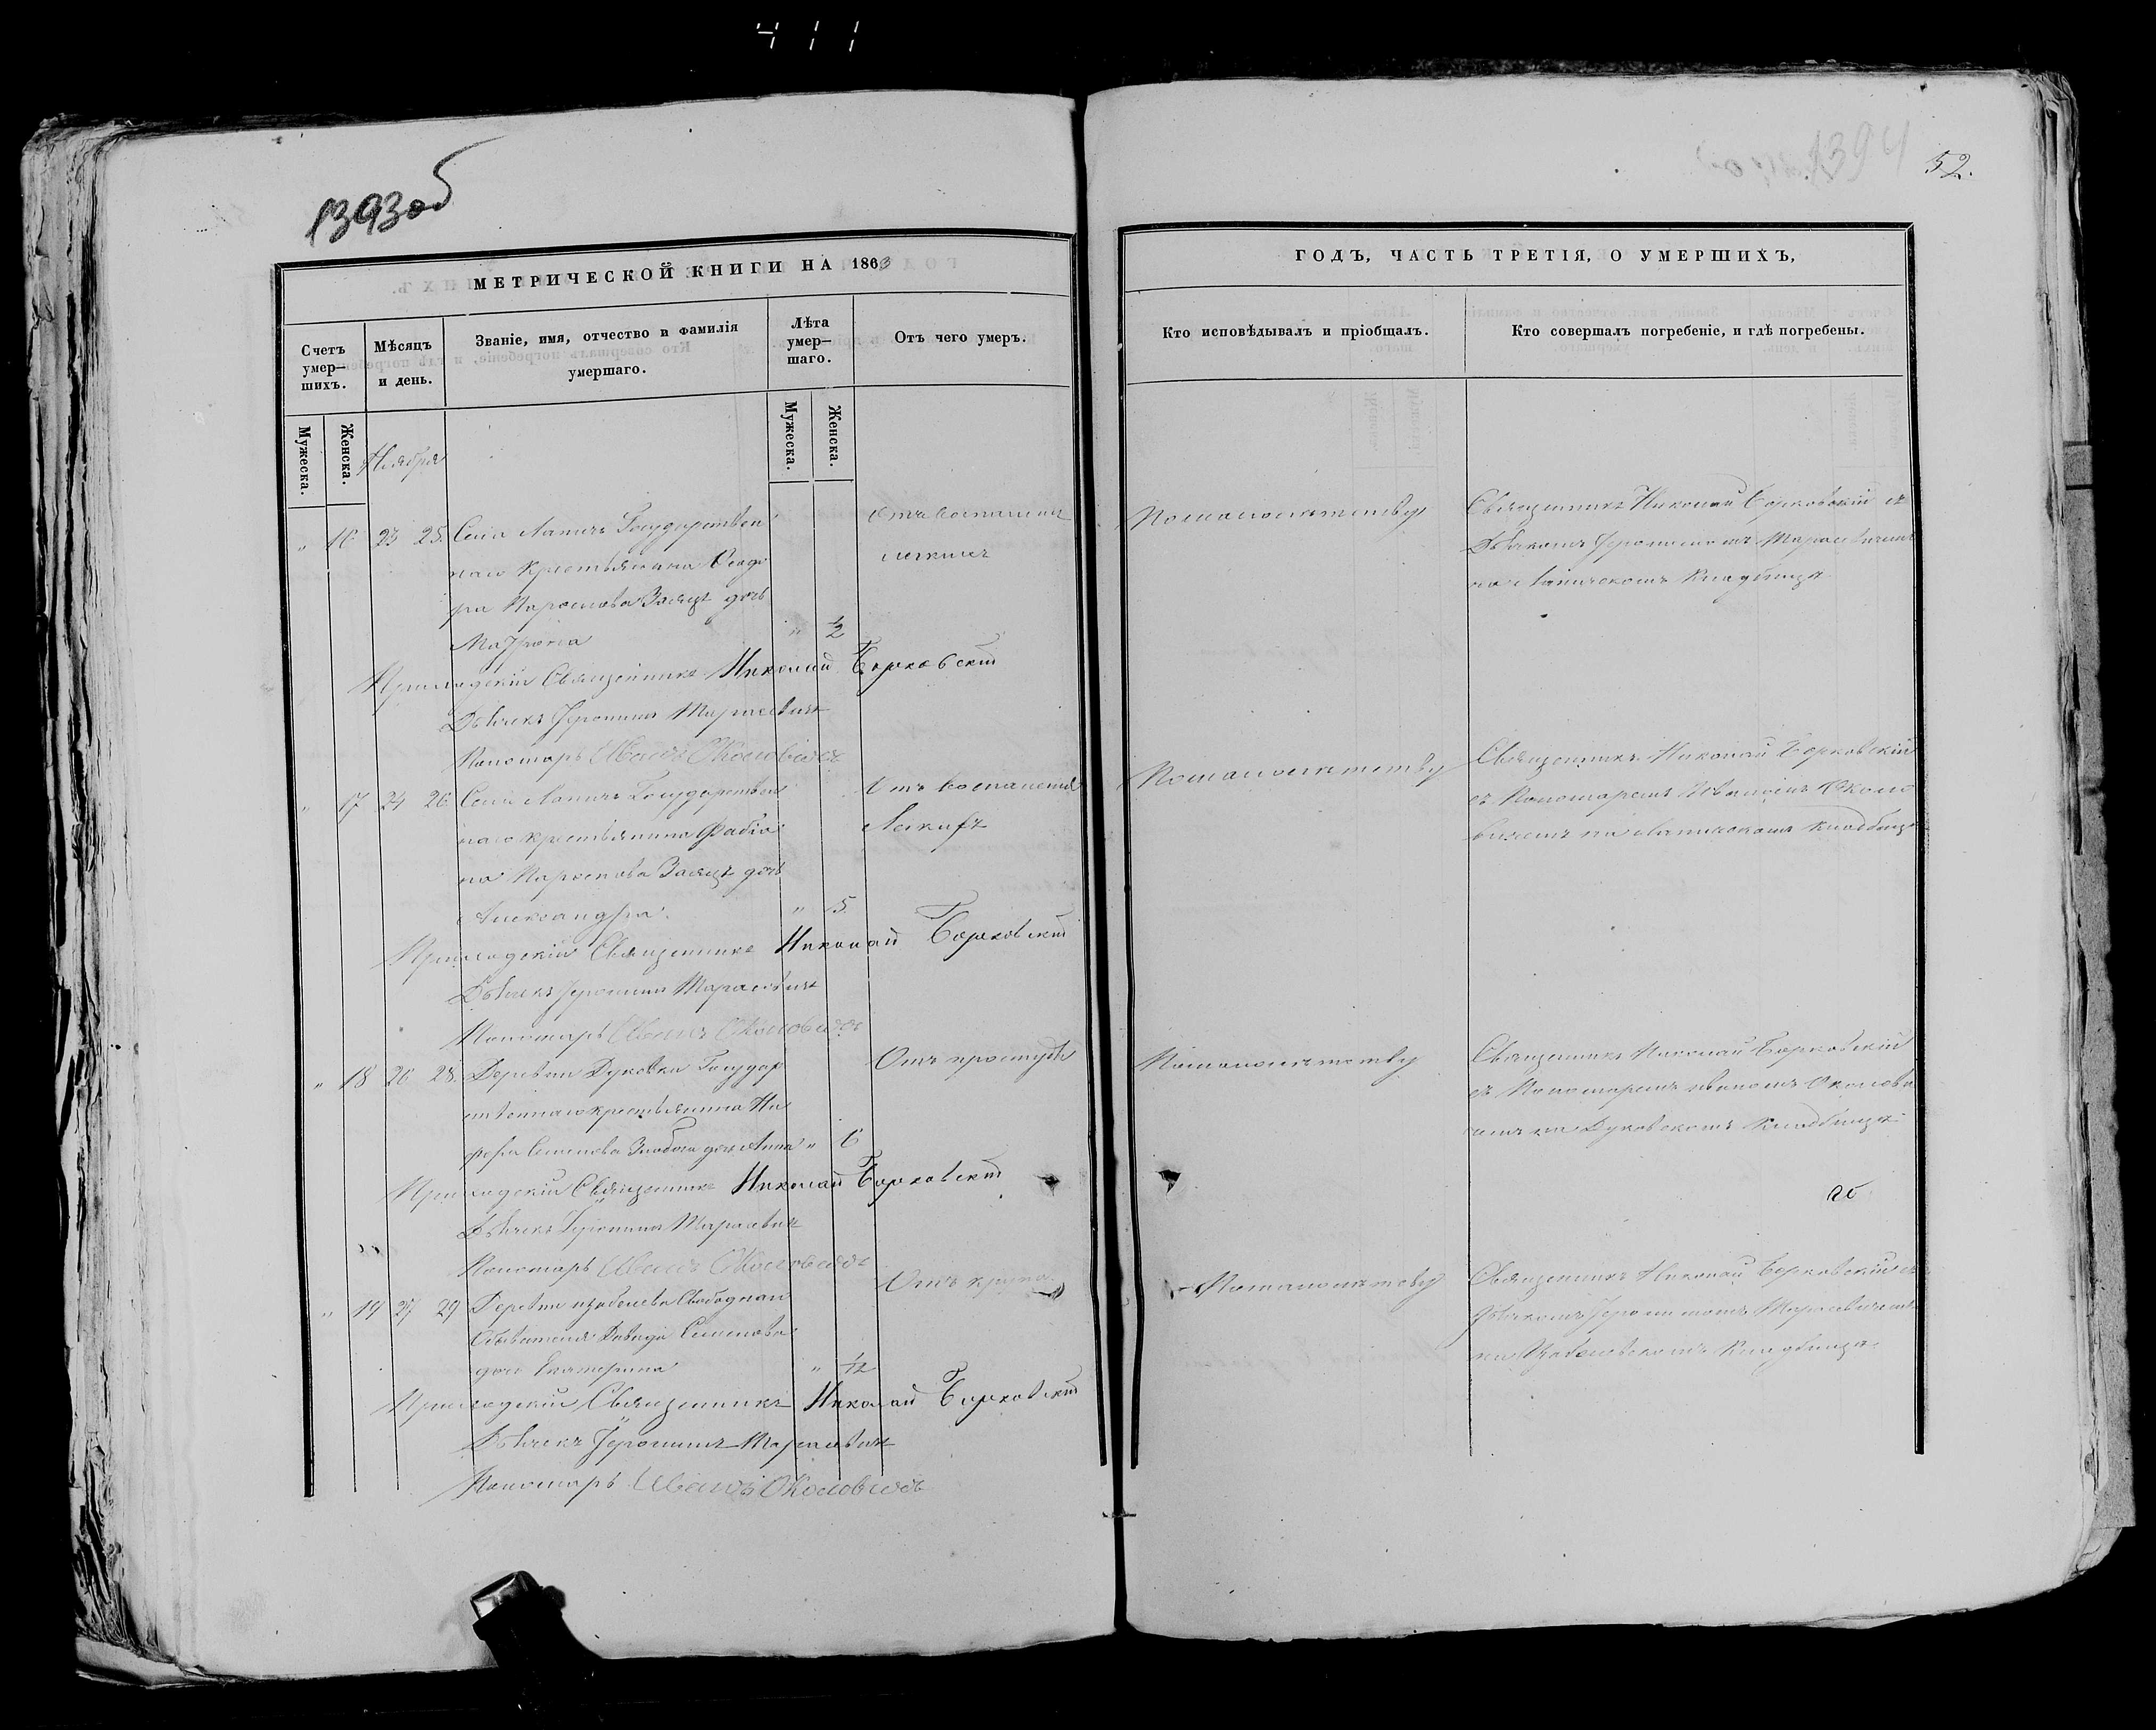 411
1393об
1394
52.
МЕТРИЧЕСКОЙ КНИГИ НА 1863
ГОДЪ, ЧАСТЬ ТРЕТІЯ, О УМЕРШИХЪ,
Счетъ умер–шихъ.
Мѣсяцъ и день.
Званіе, имя, отчество и фамилія умершаго.
Лѣта умер–шаго.
Отъ чего умеръ.
Кто исповѣдывалъ и пріобщалъ.
Кто совершалъ погребеніе, и гдѣ погребены.
Мужеска.
Женска.
Мужеска.
Женска.
Ноября
" 16 23 25. Села Лапичъ Государствен
наго крестьянина Ѳеодо
ра Заяцъ дочь
Матрона " 1/2
Отъ воспаленія
легкихъ
По малолѣтству
Священникъ Николай Борковскій съ
Дьячкомъ Іеронимомъ Марцевичемъ
на Лапичскомъ кладбищѣ
Приходскій Священникъ Николай Борковскій
Дьячекъ Іеронимъ
Пономарь Иванъ Околовичъ
" 17 24 26. Села Лапичъ Государствен
наго крестьянина Фабіа
на Заяцъ дочь
Александра. " 5.
Отъ воспаленія
Легкихъ
По малолѣтству
Священникъ Николай Борковскій
съ Пономаремъ Иваномъ Около
вичемъ на Лапичскомъ кладбищѣ
Приходскій Священникъ Николай Борковскій
Дьячекъ Іеронимъ
Пономарь Иванъ Околовичъ
" 18 26 28. Деревни Духовки Государ
ственнаго крестьянина Ни
Семенова дочь Анна " 6
Отъ простуды
По малолѣтству
Священникъ Николай Борковскій
съ Пономаремъ Иваномъ Околови
чемъ на кладбищѣ
Приходскій Священникъ Николай Борковскій
Дьячекъ Іеронимъ
Пономарь Иванъ Околовичъ
" 19 27 29 Деревни Свободнаго
Обывателя Давида Семенова
дочь Екатерина " 1/12
Отъ крупа
По малолѣтству
Священникъ Николай Борковскій съ
Дьячкомъ Іеронимомъ
на кладбищѣ
Приходскій Священникъ Николай Борковскій
Дьячекъ Іеронимъ
Пономарь Иванъ Околовичъ